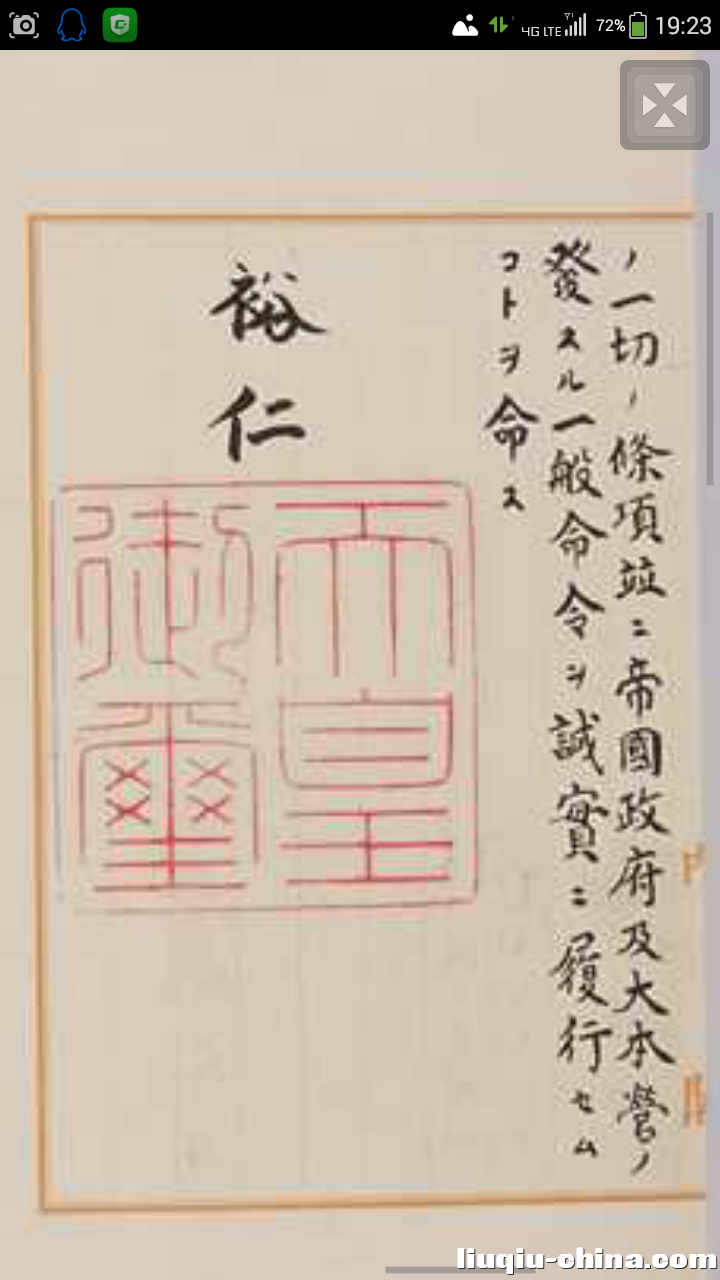 72%
4G LTE
19:23
ノ一切ノ條項竝ニ帝國政府及大本營ノ
發スル一般命令ヲ誠實ニ履行セム
コトヲ命ス
裕仁
天皇
御璽
liuqiu-china.com